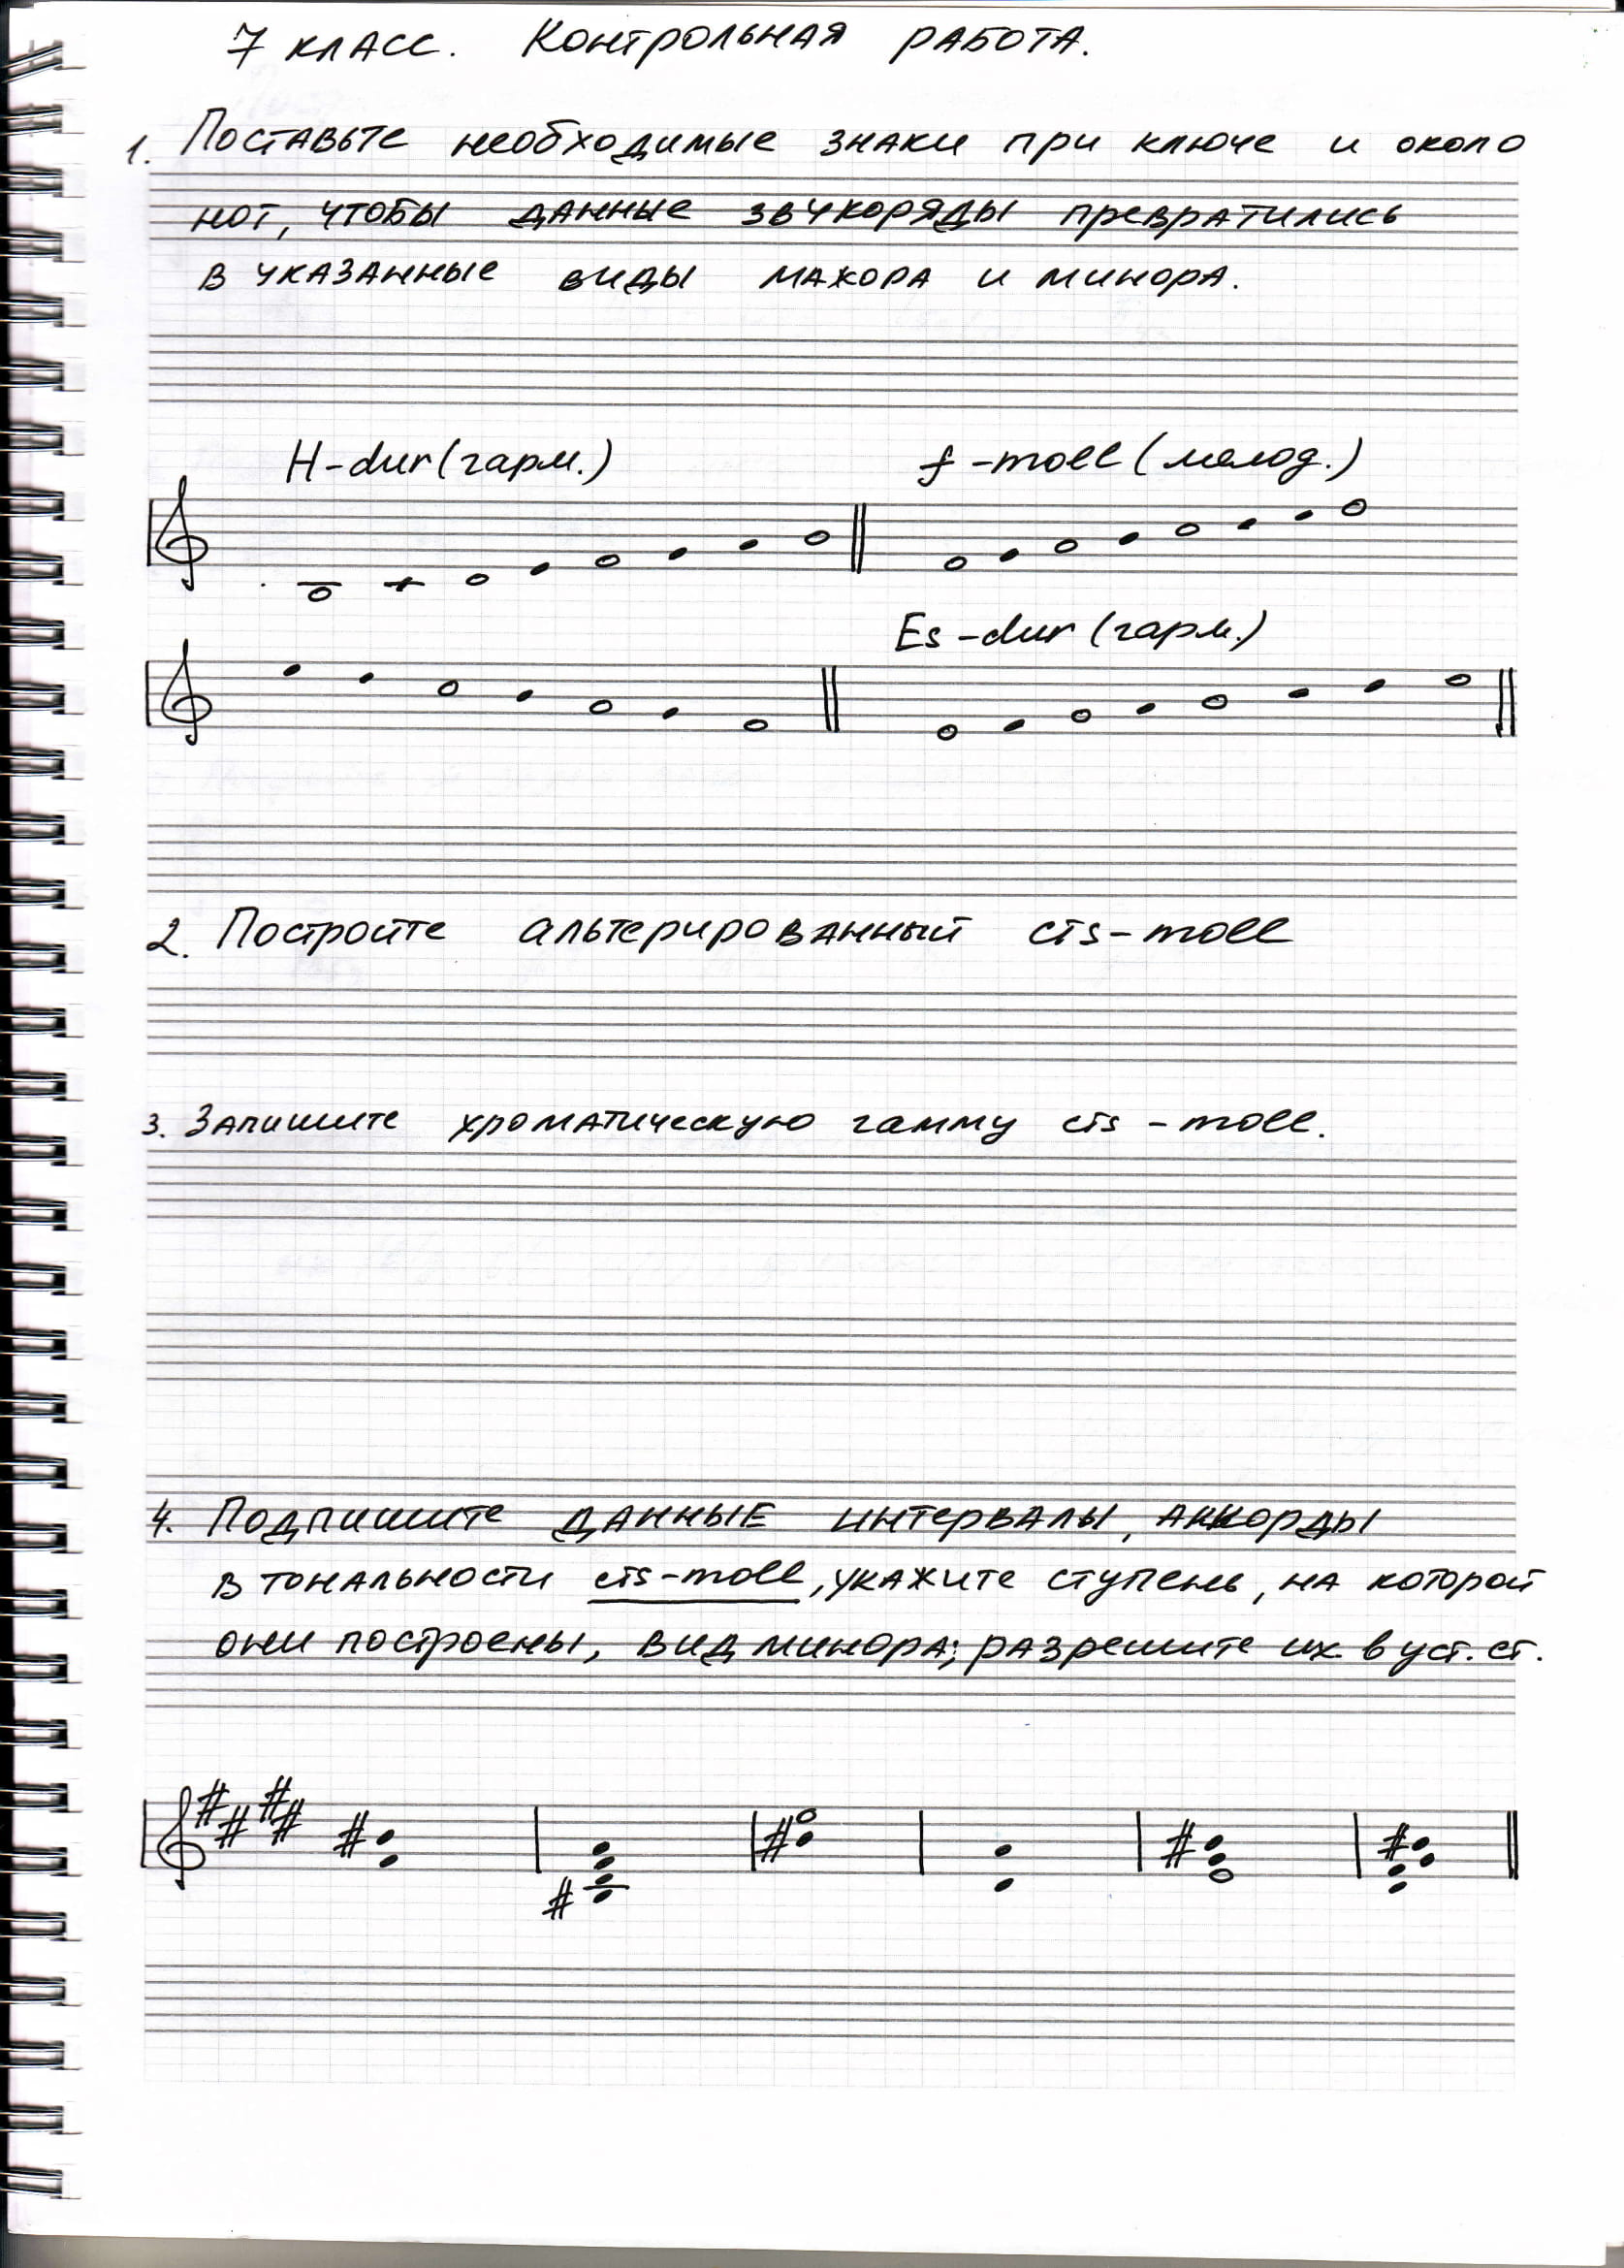 7 класс. Контрольная работа.
1. Поставьте необходимые знаки при ключе и около
нот, чтобы данные звукоряды превратились
в указанные виды мажора и минора.
H-dur (гарм.) f-moll (мелод.)
Es-dur (гарм.)
2. Постройте альтерированный cis-moll
3. Запишите хроматическую гамму cis-moll.
4. Подпишите данные интервалы, аккорды
в тональности cis-moll, укажите ступень, на которой
они построены, вид минора; разрешите их в уст. ст.